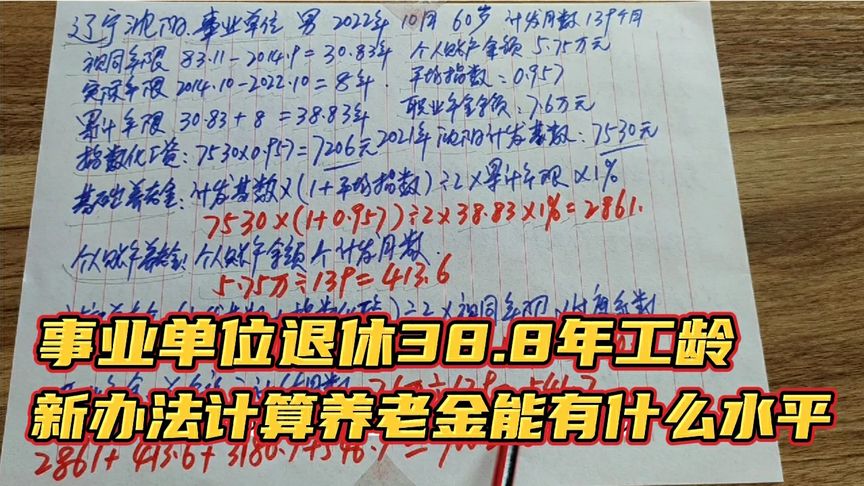 辽宁沈阳.事业单位 男 2022年 10月 60岁 计发月数139个月
视同年限 83.11-2014.9=30.83年 个人账户金额 5.75万元
实际年限 2014.10-2022.10=8年. 平均指数:0.957
累计年限 30.83+8=38.83年 职业年金金额:7.6万元
指数化工资:7530×0.957=7206元 2021年沈阳计发基数:7530元
基础养老金:计发基数×(1+平均指数)÷2×累计年限×1%
7530×(1+0.957)÷2×38.83×1%=2861.
个人账户养老金:个人账户金额 个计发月数
5.75万÷139=413.6
÷2×视同年限
事业单位退休38.8年工龄
新办法计算养老金能有什么水平
2861+413.6+3180.7+546.7=